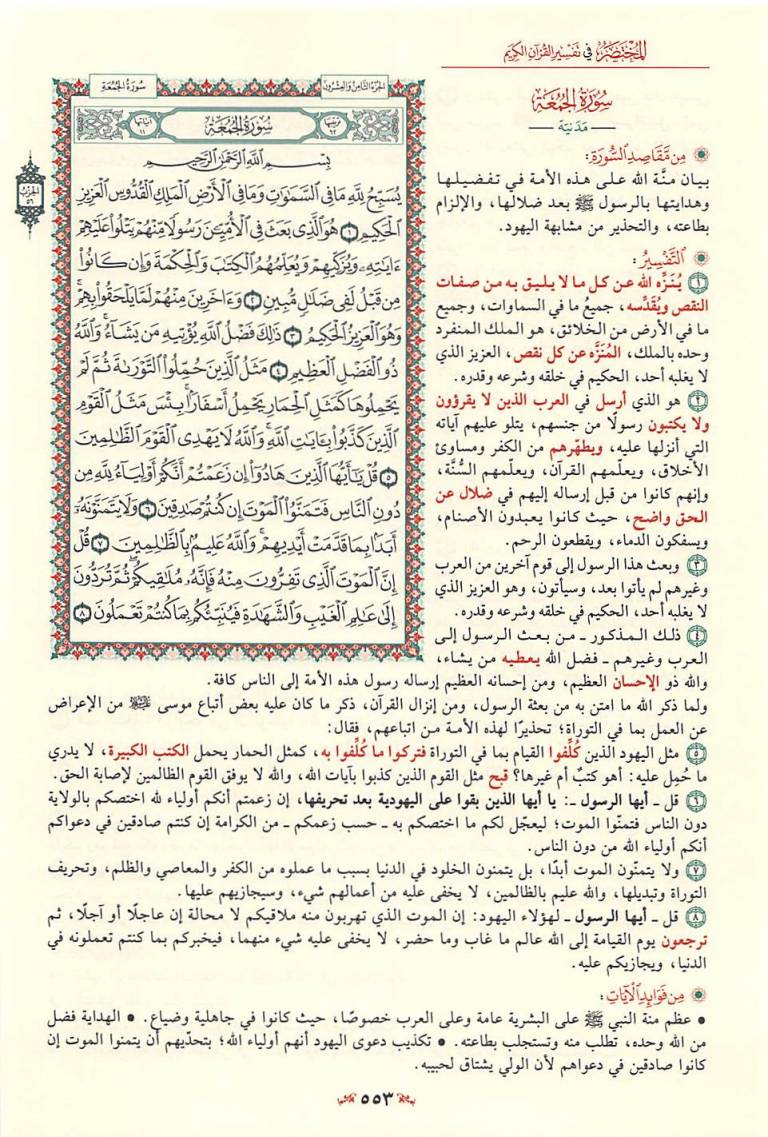 المختصر في تفسير القرآن الكريم
سورة الجمعة
مدنية
من مقاصد السورة:
بيان منَّة الله على هذه الأمة في تفضيلها
وهدايتها بالرسول ﷺ بعد ضلالها، والإلزام
بطاعته، والتحذير من مشابهة اليهود.
التفسير:
١ يُنَزِّه الله عن كل ما لا يليق به من صفات
النقص ويُقَدِّسه، جميعُ ما في السماوات، وجميع
ما في الأرض من الخلائق، هو الملك المنفرد
وحده بالملك، المُنَزَّه عن كل نقص، العزيز الذي
لا يغلبه أحد، الحكيم في خلقه وشرعه وقدره.
٢ هو الذي أرسل في العرب الذين لا يقرؤون
ولا يكتبون رسولًا من جنسهم، يتلو عليهم آياته
التي أنزلها عليه، ويطهّرهم من الكفر ومساوئ
الأخلاق، ويعلّمهم القرآن، ويعلّمهم السُّنَّة،
وإنهم كانوا من قبل إرساله إليهم في ضلال عن
الحق واضح، حيث كانوا يعبدون الأصنام،
ويسفكون الدماء، ويقطعون الرحم.
٣ وبعث هذا الرسول إلى قوم آخرين من العرب
وغيرهم لم يأتوا بعد، وسيأتون، وهو العزيز الذي
لا يغلبه أحد، الحكيم في خلقه وشرعه وقدره.
٤ ذلك المذكور ـ من بعث الرسول إلى
العرب وغيرهم ـ فضل الله يعطيه من يشاء،
والله ذو الإحسان العظيم، ومن إحسانه العظيم إرساله رسول هذه الأمة إلى الناس كافة.
الجزء الثامن والعشرون
سورة الجمعة
ترتيبها ٦٢
سُورَةُ الجُمُعَةِ
آياتها ١١
بِسْمِ اللَّهِ الرَّحْمَٰنِ الرَّحِيمِ
يُسَبِّحُ لِلَّهِ مَا فِي السَّمَٰوَٰتِ وَمَا فِي الْأَرْضِ الْمَلِكِ الْقُدُّوسِ الْعَزِيزِ
الْحَكِيمِ ١ هُوَ الَّذِي بَعَثَ فِي الْأُمِّيِّـۧنَ رَسُولًا مِّنْهُمْ يَتْلُوا۟ عَلَيْهِمْ
ءَايَٰتِهِۦ وَيُزَكِّيهِمْ وَيُعَلِّمُهُمُ الْكِتَٰبَ وَالْحِكْمَةَ وَإِن كَانُوا۟
مِن قَبْلُ لَفِي ضَلَٰلٍ مُّبِينٍ ٢ وَءَاخَرِينَ مِنْهُمْ لَمَّا يَلْحَقُوا۟ بِهِمْ ۚ
وَهُوَ الْعَزِيزُ الْحَكِيمُ ٣ ذَٰلِكَ فَضْلُ اللَّهِ يُؤْتِيهِ مَن يَشَآءُ ۚ وَاللَّهُ
ذُو الْفَضْلِ الْعَظِيمِ ٤ مَثَلُ الَّذِينَ حُمِّلُوا۟ التَّوْرَىٰةَ ثُمَّ لَمْ
يَحْمِلُوهَا كَمَثَلِ الْحِمَارِ يَحْمِلُ أَسْفَارًۢا ۚ بِئْسَ مَثَلُ الْقَوْمِ
الَّذِينَ كَذَّبُوا۟ بِـَٔايَٰتِ اللَّهِ ۚ وَاللَّهُ لَا يَهْدِي الْقَوْمَ الظَّٰلِمِينَ
٥ قُلْ يَٰٓأَيُّهَا الَّذِينَ هَادُوٓا۟ إِن زَعَمْتُمْ أَنَّكُمْ أَوْلِيَآءُ لِلَّهِ مِن
دُونِ النَّاسِ فَتَمَنَّوُا۟ الْمَوْتَ إِن كُنتُمْ صَٰدِقِينَ ٦ وَلَا يَتَمَنَّوْنَهُۥٓ
أَبَدًۢا بِمَا قَدَّمَتْ أَيْدِيهِمْ ۚ وَاللَّهُ عَلِيمٌۢ بِالظَّٰلِمِينَ ٧ قُلْ
إِنَّ الْمَوْتَ الَّذِي تَفِرُّونَ مِنْهُ فَإِنَّهُۥ مُلَٰقِيكُمْ ۖ ثُمَّ تُرَدُّونَ
إِلَىٰ عَٰلِمِ الْغَيْبِ وَالشَّهَٰدَةِ فَيُنَبِّئُكُم بِمَا كُنتُمْ تَعْمَلُونَ ٨
الحزب ٥٦
ولما ذكر الله ما امتن به من بعثة الرسول، ومن إنزال القرآن، ذكر ما كان عليه بعض أتباع موسى عليه السلام من الإعراض
عن العمل بما في التوراة؛ تحذيرًا لهذه الأمة من اتباعهم، فقال:
٥ مثل اليهود الذين كُلِّفوا القيام بما في التوراة فتركوا ما كُلِّفوا به، كمثل الحمار يحمل الكتب الكبيرة، لا يدري
ما حُمِل عليه: أهو كتبٌ أم غيرها؟ قبح مثل القوم الذين كذبوا بآيات الله، والله لا يوفق القوم الظالمين لإصابة الحق.
٦ قل ـ أيها الرسول ـ: يا أيها الذين بقوا على اليهودية بعد تحريفها، إن زعمتم أنكم أولياء لله اختصكم بالولاية
دون الناس فتمنّوا الموت؛ ليعجّل لكم ما اختصكم به ـ حسب زعمكم ـ من الكرامة إن كنتم صادقين في دعواكم
أنكم أولياء الله من دون الناس.
٧ ولا يتمنّون الموت أبدًا، بل يتمنون الخلود في الدنيا بسبب ما عملوه من الكفر والمعاصي والظلم، وتحريف
التوراة وتبديلها، والله عليم بالظالمين، لا يخفى عليه من أعمالهم شيء، وسيجازيهم عليها.
٨ قل ـ أيها الرسول ـ لهؤلاء اليهود: إن الموت الذي تهربون منه ملاقيكم لا محالة إن عاجلًا أو آجلًا، ثم
ترجعون يوم القيامة إلى الله عالم ما غاب وما حضر، لا يخفى عليه شيء منهما، فيخبركم بما كنتم تعملونه في
الدنيا، ويجازيكم عليه.
من فوائد الآيات:
• عظم منة النبي ﷺ على البشرية عامة وعلى العرب خصوصًا، حيث كانوا في جاهلية وضياع. • الهداية فضل
من الله وحده، تطلب منه وتستجلب بطاعته. • تكذيب دعوى اليهود أنهم أولياء الله؛ بتحدّيهم أن يتمنوا الموت إن
كانوا صادقين في دعواهم لأن الولي يشتاق لحبيبه.
٥٥٣